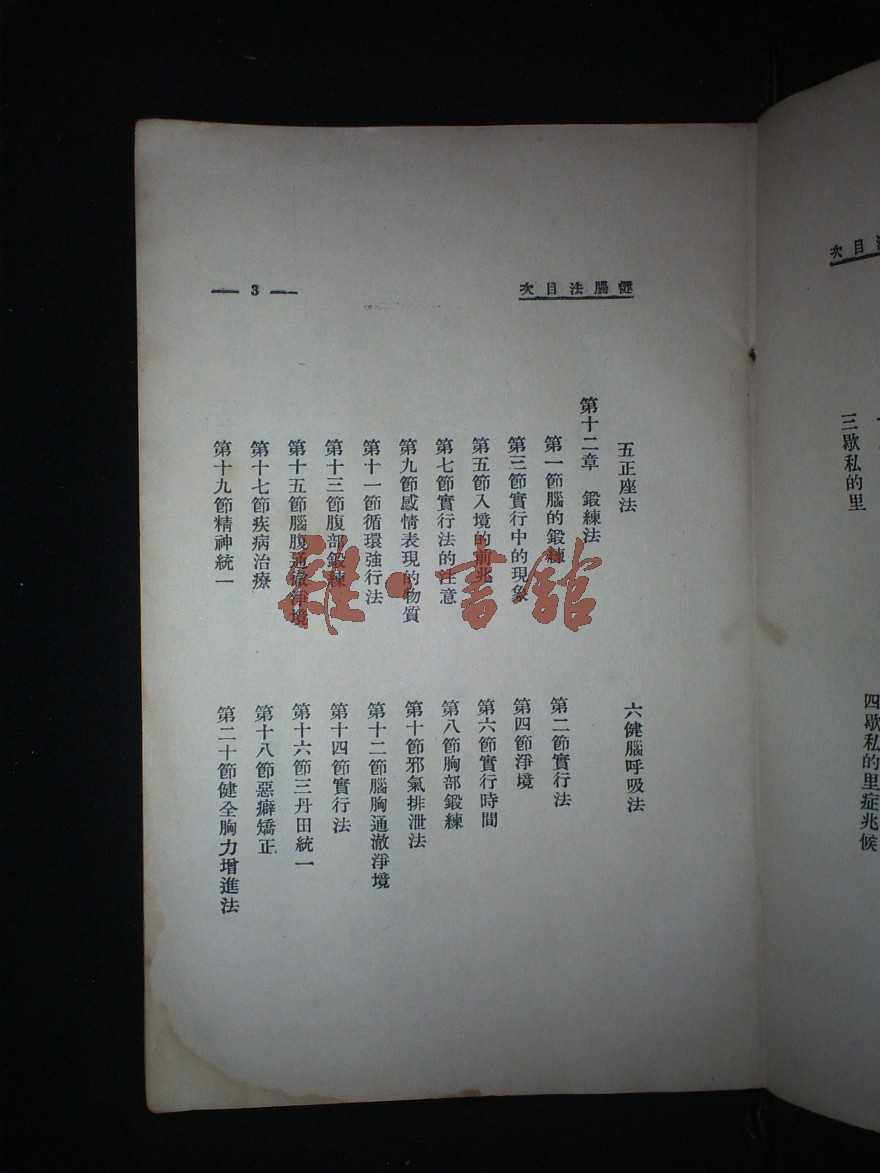 健腦法目次
— 3 —
五正座法
六健腦呼吸法
第十二章 鍛練法
第一節腦的鍛練
第二節實行法
第三節實行中的現象
第四節淨境
第五節入境的前兆
第六節實行時間
第七節實行法的注意
第八節胸部鍛練
第九節感情表現的物質
第十節邪氣排泄法
第十一節循環強行法
第十二節腦胸通澈淨境
第十三節腹部鍛練
第十四節實行法
第十五節腦腹通澈淨境
第十六節三丹田統一
第十七節疾病治療
第十八節惡癖矯正
第十九節精神統一
第二十節健全胸力增進法
目次
三歇私的里
四歇私的里症兆候
雜·書館